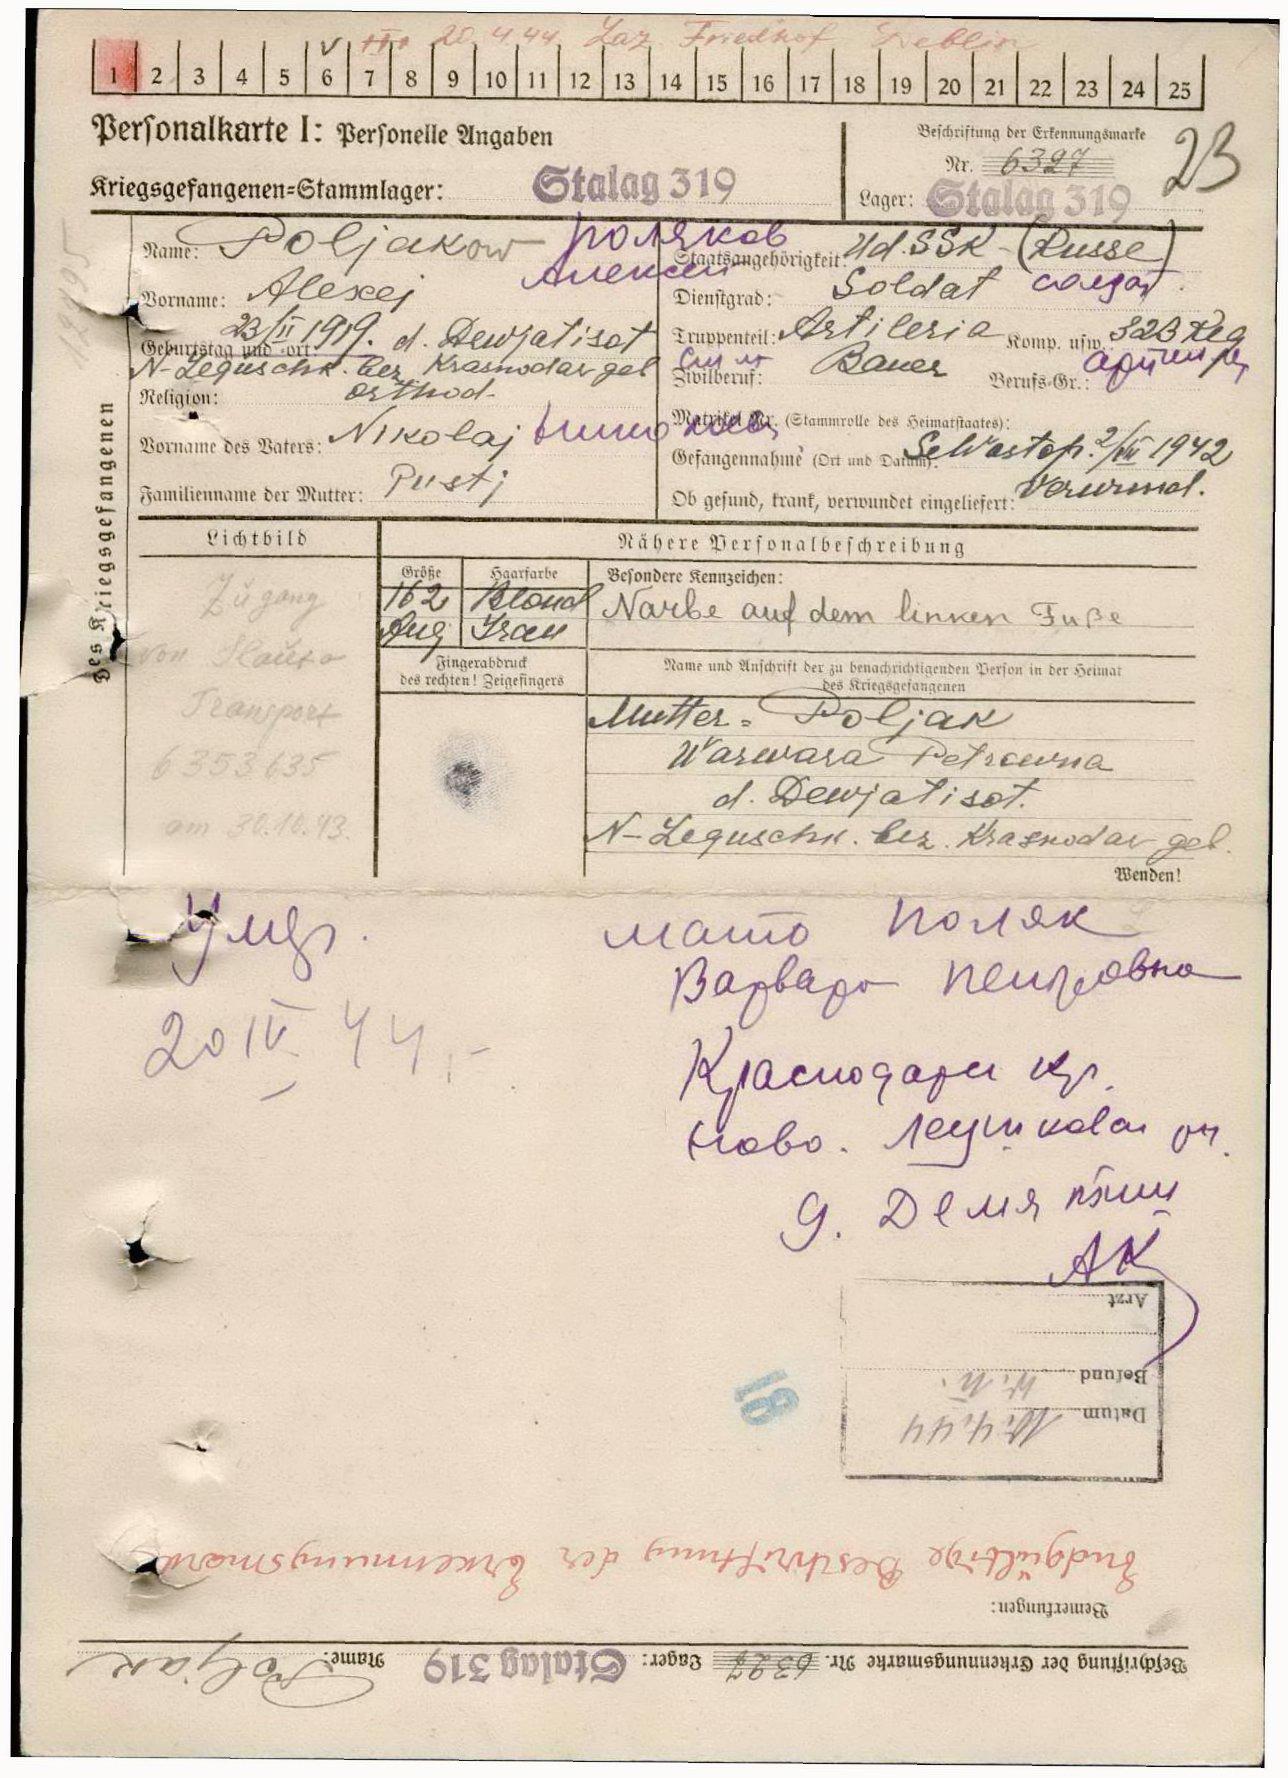 20.4.44. Laz. Friedhof Deblin
1 2 3 4 5 6 7 8 9 10 11 12 13 14 15 16 17 18 19 20 21 22 23 24 25
Personalkarte I: Personelle Angaben
Beschriftung der Erkennungsmarke
Nr. 6327
Kriegsgefangenen=Stammlager: Stalag 319
Lager: Stalag 319
Des Kriegsgefangenen
Name: Poljakow Поляков
Алексей
Vorname: Alexej
Geburtstag und -ort: 23/II 1919. d. Dewjatisot
N-Leguschk. bez Krasnodar geb
Religion: orthod.
Vorname des Vaters: Nikolaj
Familienname der Mutter: Pustj
Staatsangehörigkeit: Ud.SSR (Russe)
Dienstgrad: Soldat солдат
Truppenteil: Artileria Komp. usw. 323 Reg
Zivilberuf: Bauer Berufs-Gr.:
Matrikel Nr. (Stammrolle des Heimatstaates):
Gefangennahme (Ort und Datum): Sewastop. 2/VII 1942
Ob gesund, krank, verwundet eingeliefert: Verwund.
Lichtbild
Zugang
von
Transport
6353635
am 30.10.43.
Nähere Personalbeschreibung
Größe Haarfarbe Besondere Kennzeichen:
162 Blond Narbe auf dem linken Fuße
Aug Grau
Fingerabdruck
des rechten! Zeigefingers
Name und Anschrift der zu benachrichtigenden Person in der Heimat
des Kriegsgefangenen
Mutter = Poljak
Warwara Petrowna
d. Dewjatisot.
N-Leguschk. bez. Krasnodar geb.
Wenden!
Умер.
20 IV 44.
мать Поляк
Варвара Петровна
Краснодарск кр.
Ново. Леушковск рн.
д.
Arzt
Befund
Datum 10.4.44
18
Endgültige Beschriftung der Erkennungsmarke
Bemerkungen:
Beschriftung der Erkennungsmarke Nr. 6327 Lager: Stalag 319 Name: Poljak